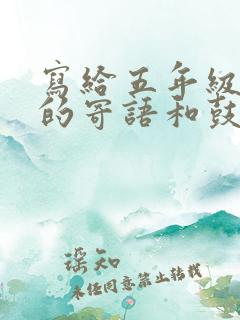 寫給五年級
的寄語和鼓
瑤知
未經同意禁止轉載